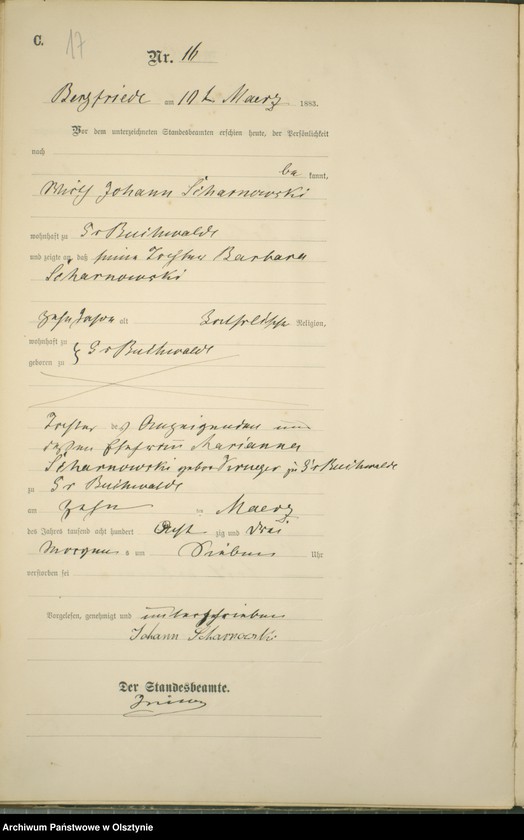 C.
17
Nr. 16
Bergfriede am 10 t Maerz 1883.
Vor dem unterzeichneten Standesbeamten erschien heute, der Persönlichkeit
nach
be kannt,
Wirth Johann Scharnowski
wohnhaft zu Gr Buchwalde
und zeigte an, daß seine Tochter Barbara
Scharnowski
zehn Jahre alt Katholische Religion,
wohnhaft zu
geboren zu } Gr Buchwalde
Tochter des Anzeigenden und
dessen Ehefrau Marianna
Scharnowski geboren zu Gr Buchwalde
zu Gr Buchwalde
am zehn ten Maerz
des Jahres tausend acht hundert Acht zig und drei
Morgens um Sieben Uhr
verstorben sei
Vorgelesen, genehmigt und unterschrieben
Johann Scharnowski
Der Standesbeamte.
Archiwum Państwowe w Olsztynie